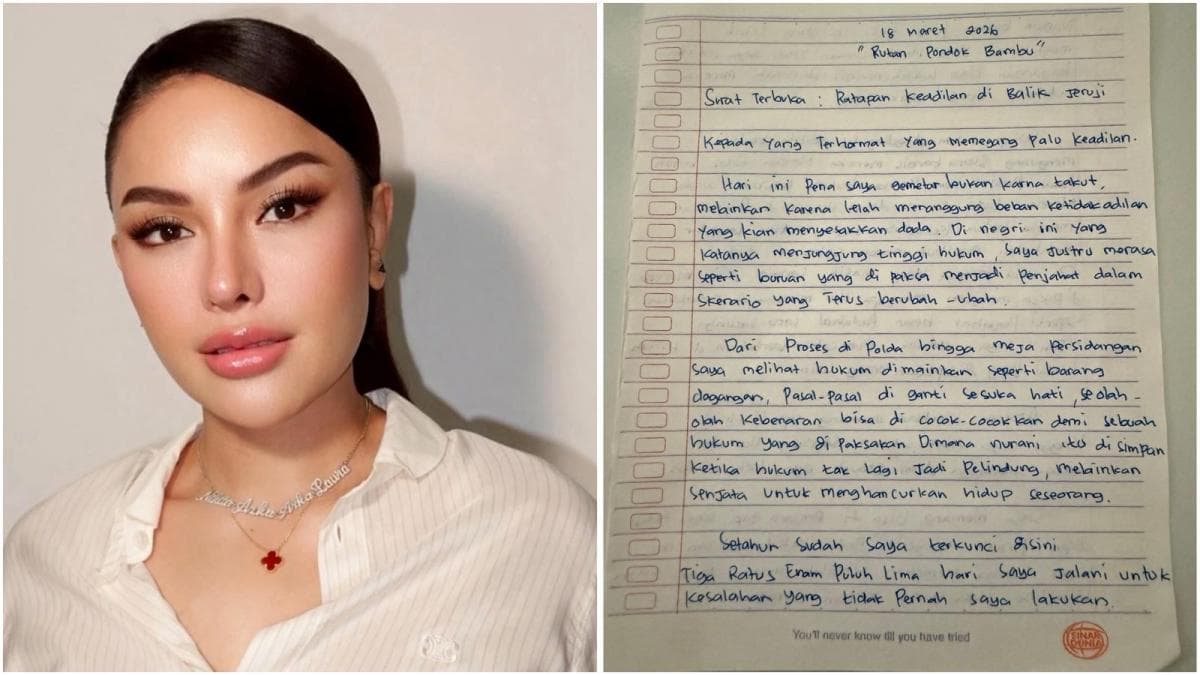 Arka Laura
18 Maret 2026
"Rutan Pondok Bambu"
Surat Terbuka : Ratapan Keadilan di Balik Jeruji
Kepada Yang Terhormat Yang memegang Palu Keadilan.
Hari ini Pena saya gemetar bukan karna takut,
melainkan karena lelah menanggung beban ketidakadilan
yang kian menyesakkan dada. Di negri ini yang
katanya menjungjung tinggi hukum, saya justru merasa
seperti buruan yang di paksa menjadi penjahat dalam
Skenario yang Terus berubah-ubah.
Dari Proses di Polda hingga meja Persidangan
saya melihat hukum dimainkan seperti barang
dagangan, Pasal-Pasal di ganti sesuka hati, seolah-
olah kebenaran bisa di cocok-cocokkan demi sebuah
hukum yang di paksakan Dimana nurani itu di simpan
ketika hukum tak lagi jadi Pelindung, melainkan
senjata untuk menghancurkan hidup seseorang.
Setahun sudah saya terkunci disini
Tiga Ratus Enam Puluh Lima hari saya jalani untuk
kesalahan yang tidak Pernah saya lakukan.
You'll never know till you have tried
SINAR
DUNIA